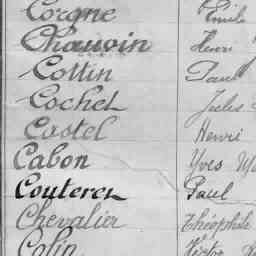 Corgne Emile
Chauvin Henri
Cottin Paul
Cochet Jules
Castel Henri
Cabon Yves
Couteret Paul
Chevalier Théophile
Colin Victor